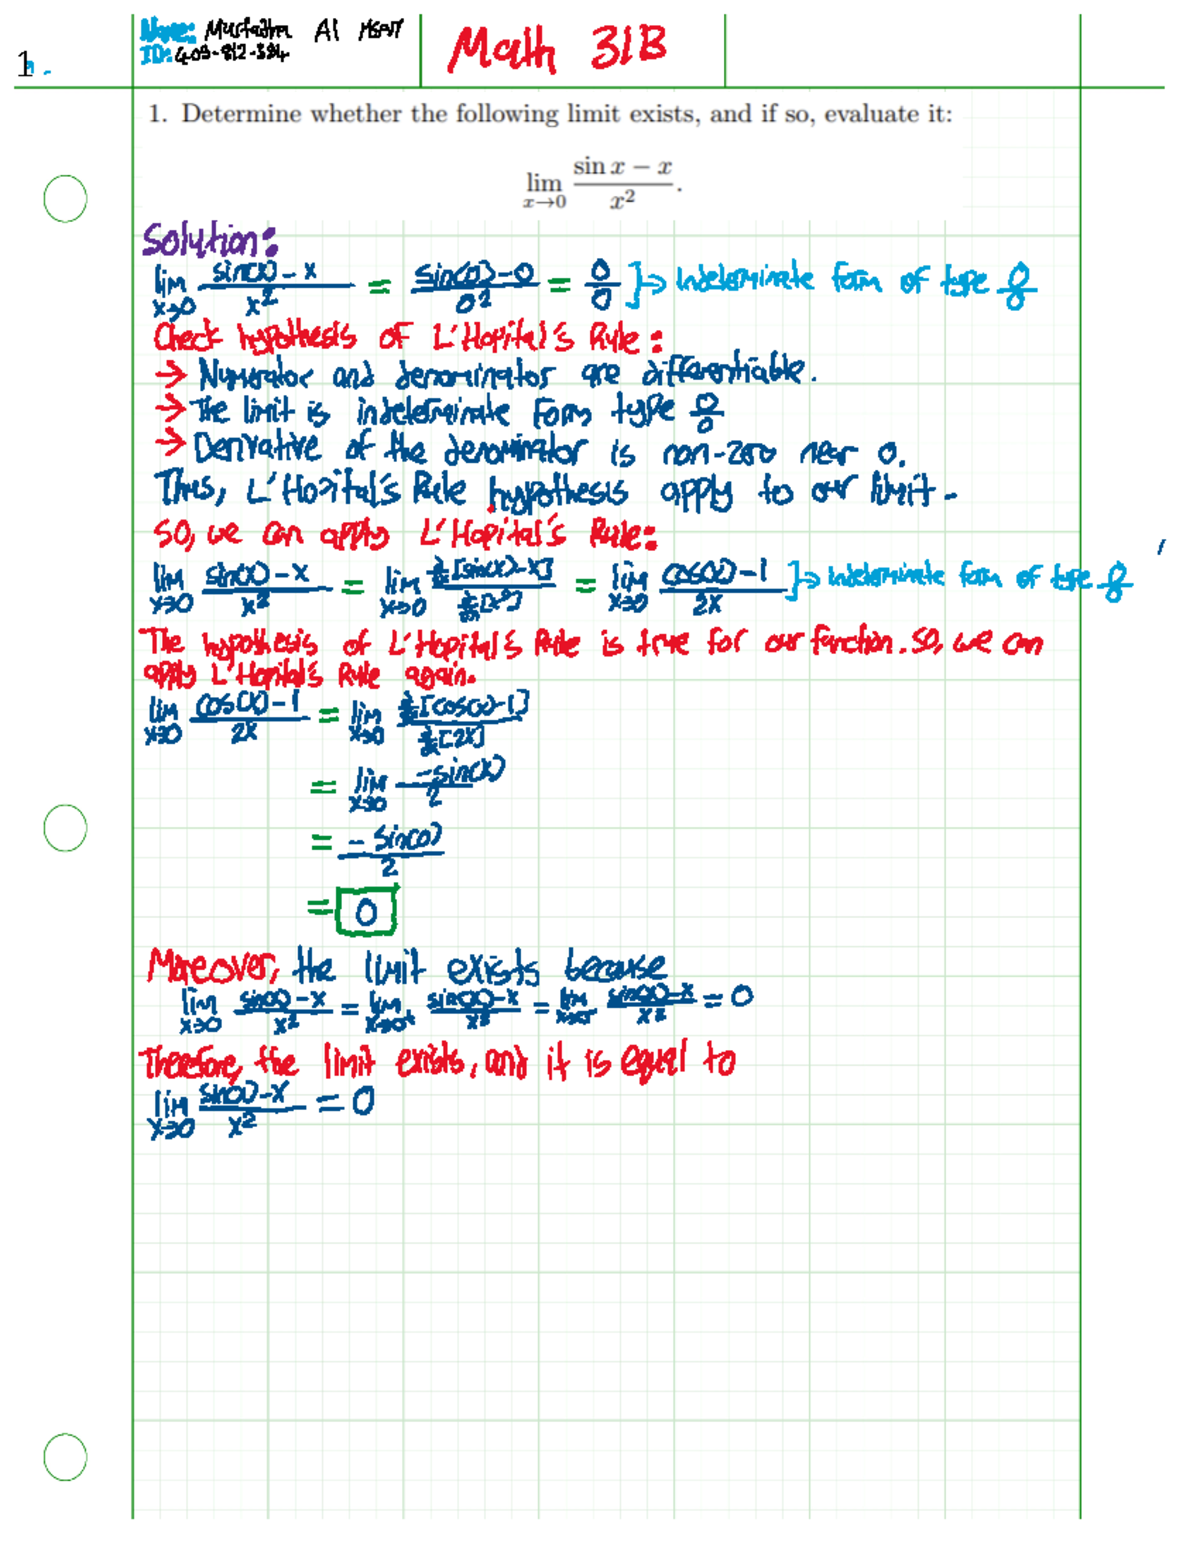 Name: Mustafa Al
ID:
Math 31B
1.
1. Determine whether the following limit exists, and if so, evaluate it:
lim x→0 (sin x − x)/x².
Solution:
lim x→0 (sin(x) - x)/x² = (sin(0) - 0)/0² = 0/0 }→ Indeterminate form of type 0/0
Check hypothesis of L'Hopital's Rule:
→ Numerator and denominator are differentiable.
→ The limit is indeterminate form type 0/0
→ Derivative of the denominator is non-zero near 0.
Thus, L'Hopital's Rule hypothesis apply to our limit.
SO, we can apply L'Hopital's Rule:
lim x→0 (sin(x) - x)/x² = lim x→0 (d/dx [sin(x) - x])/(d/dx [x²]) = lim x→0 (cos(x) - 1)/2x }→ Indeterminate form of type 0/0
The hypothesis of L'Hopital's Rule is true for our function. So, we can
apply L'Hopital's Rule again.
lim x→0 (cos(x) - 1)/2x = lim x→0 (d/dx [cos(x) - 1])/(d/dx [2x])
= lim x→0 -sin(x)/2
= -sin(0)/2
= 0
Moreover, the limit exists because
lim x→0 (sin(x) - x)/x² = lim x→0⁺ (sin(x) - x)/x² = lim x→0⁻ (sin(x) - x)/x² = 0
Therefore, the limit exists, and it is equal to
lim x→0 (sin(x) - x)/x² = 0